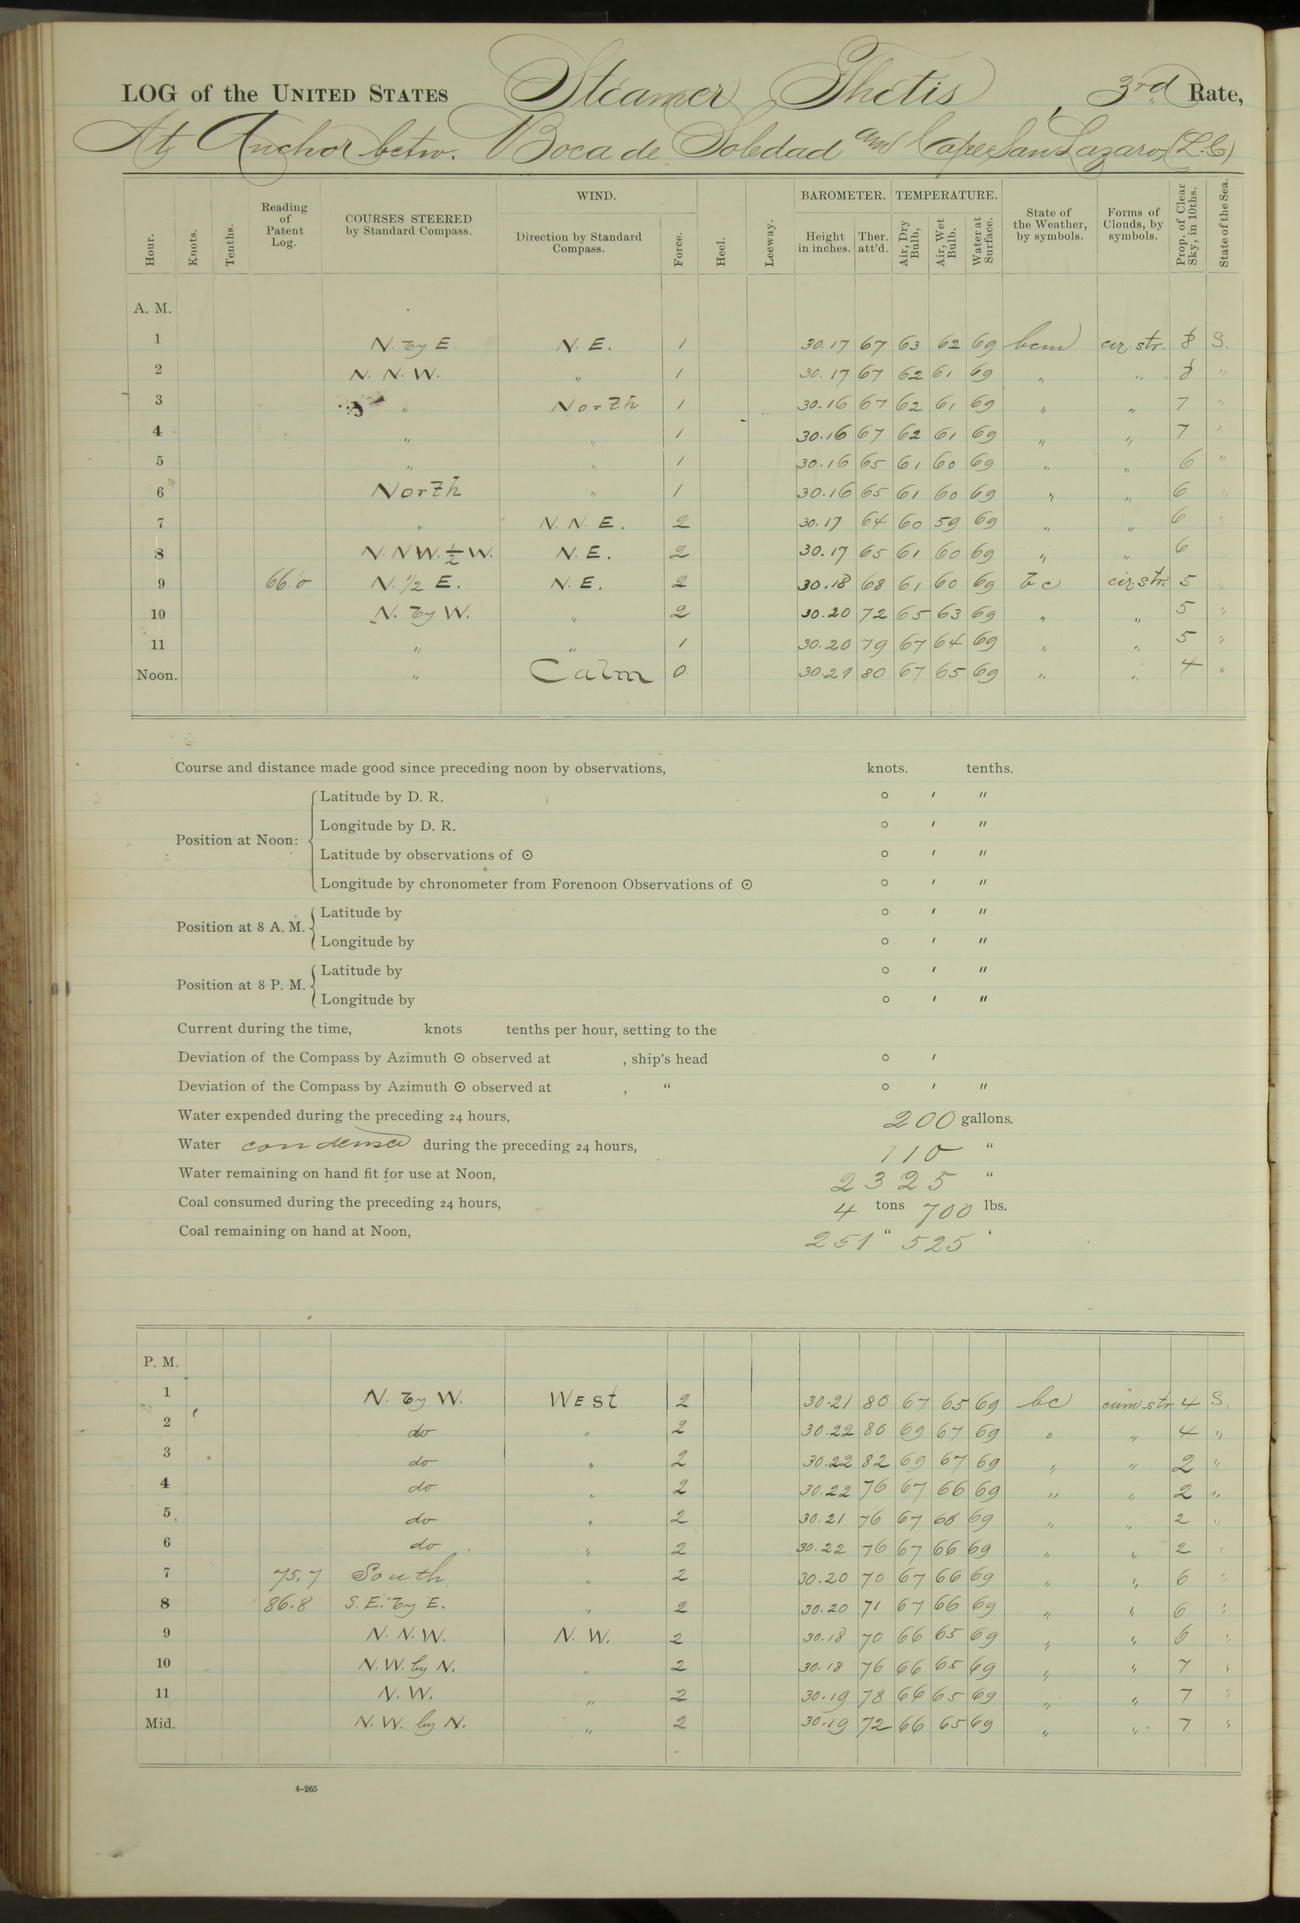 LOG of the UNITED STATES Steamer Thetis, 3rd Rate,
At Anchor betw. Boca de Soledad and Cape San Lazaro, (L.C)
Hour. Knots. Tenths. Reading of Patent Log. COURSES STEERED by Standard Compass. WIND. Direction by Standard Compass. Force. Heel. Leeway. BAROMETER. Height in inches. Ther. att'd. TEMPERATURE. Air, Dry Bulb, Air, Wet Bulb. Water at Surface. State of the Weather, by symbols. Forms of Clouds, by symbols. Prop. of Clear Sky, in 10ths. State of the Sea.
A. M.
1 N. by E. N. E. 1 30.17 67 63 62 69 bcm cir. str. 8 S.
2 N. N. W. " 1 30.17 67 62 61 69 " " 8 "
3 " North 1 30.16 67 62 61 69 " " 7 "
4 " " 1 30.16 67 62 61 69 " " 7 "
5 " " 1 30.16 65 61 60 69 " " 6 "
6 North " 1 30.16 65 61 60 69 " " 6 "
7 " N. N. E. 2 30.17 64 60 59 69 " " 6 "
8 N. N W. 1/2 W. N. E. 2 30.17 65 61 60 69 " " 6
9 66.0 N. 1/2 E. N. E. 2 30.18 68 61 60 69 bc cir. str. 5 "
10 N. by W. " 2 30.20 72 65 63 69 " " 5 "
11 " " 1 30.20 79 67 64 69 " " 5 "
Noon. " Calm 0 30.21 80 67 65 69 " " 4 "
Course and distance made good since preceding noon by observations, knots. tenths.
Position at Noon: Latitude by D. R. ° ′ ″
Longitude by D. R. ° ′ ″
Latitude by observations of ☉ ° ′ ″
Longitude by chronometer from Forenoon Observations of ☉ ° ′ ″
Position at 8 A. M. Latitude by ° ′ ″
Longitude by ° ′ ″
Position at 8 P. M. Latitude by ° ′ ″
Longitude by ° ′ ″
Current during the time, knots tenths per hour, setting to the
Deviation of the Compass by Azimuth ☉ observed at , ship's head ° ′
Deviation of the Compass by Azimuth ☉ observed at , " ° ′ ″
Water expended during the preceding 24 hours, 200 gallons.
Water condensed during the preceding 24 hours, 110 "
Water remaining on hand fit for use at Noon, 2325 "
Coal consumed during the preceding 24 hours, 4 tons 700 lbs.
Coal remaining on hand at Noon, 251 " 525 "
P. M.
1 N. by W. West 2 30.21 80 67 65 69 bc cum. str 4 S.
2 do " 2 30.22 80 69 67 69 " " 4 "
3 do " 2 30.22 82 69 67 69 " " 2 "
4 do " 2 30.22 76 67 66 69 " " 2 "
5 do " 2 30.21 76 67 66 69 " " 2 "
6 do " 2 30.22 76 67 66 69 " " 2 "
7 75.7 South " 2 30.20 70 67 66 69 " " 6 "
8 86.8 S. E. by E. " 2 30.20 71 67 66 69 " " 6 "
9 N. N. W. N. W. 2 30.18 70 66 65 69 " " 6 "
10 N. W. by N. " 2 30.18 76 66 65 69 " " 7 "
11 N. W. " 2 30.19 78 66 65 69 " " 7 "
Mid. N. W. by N. " 2 30.19 72 66 65 69 " " 7 "
4-265